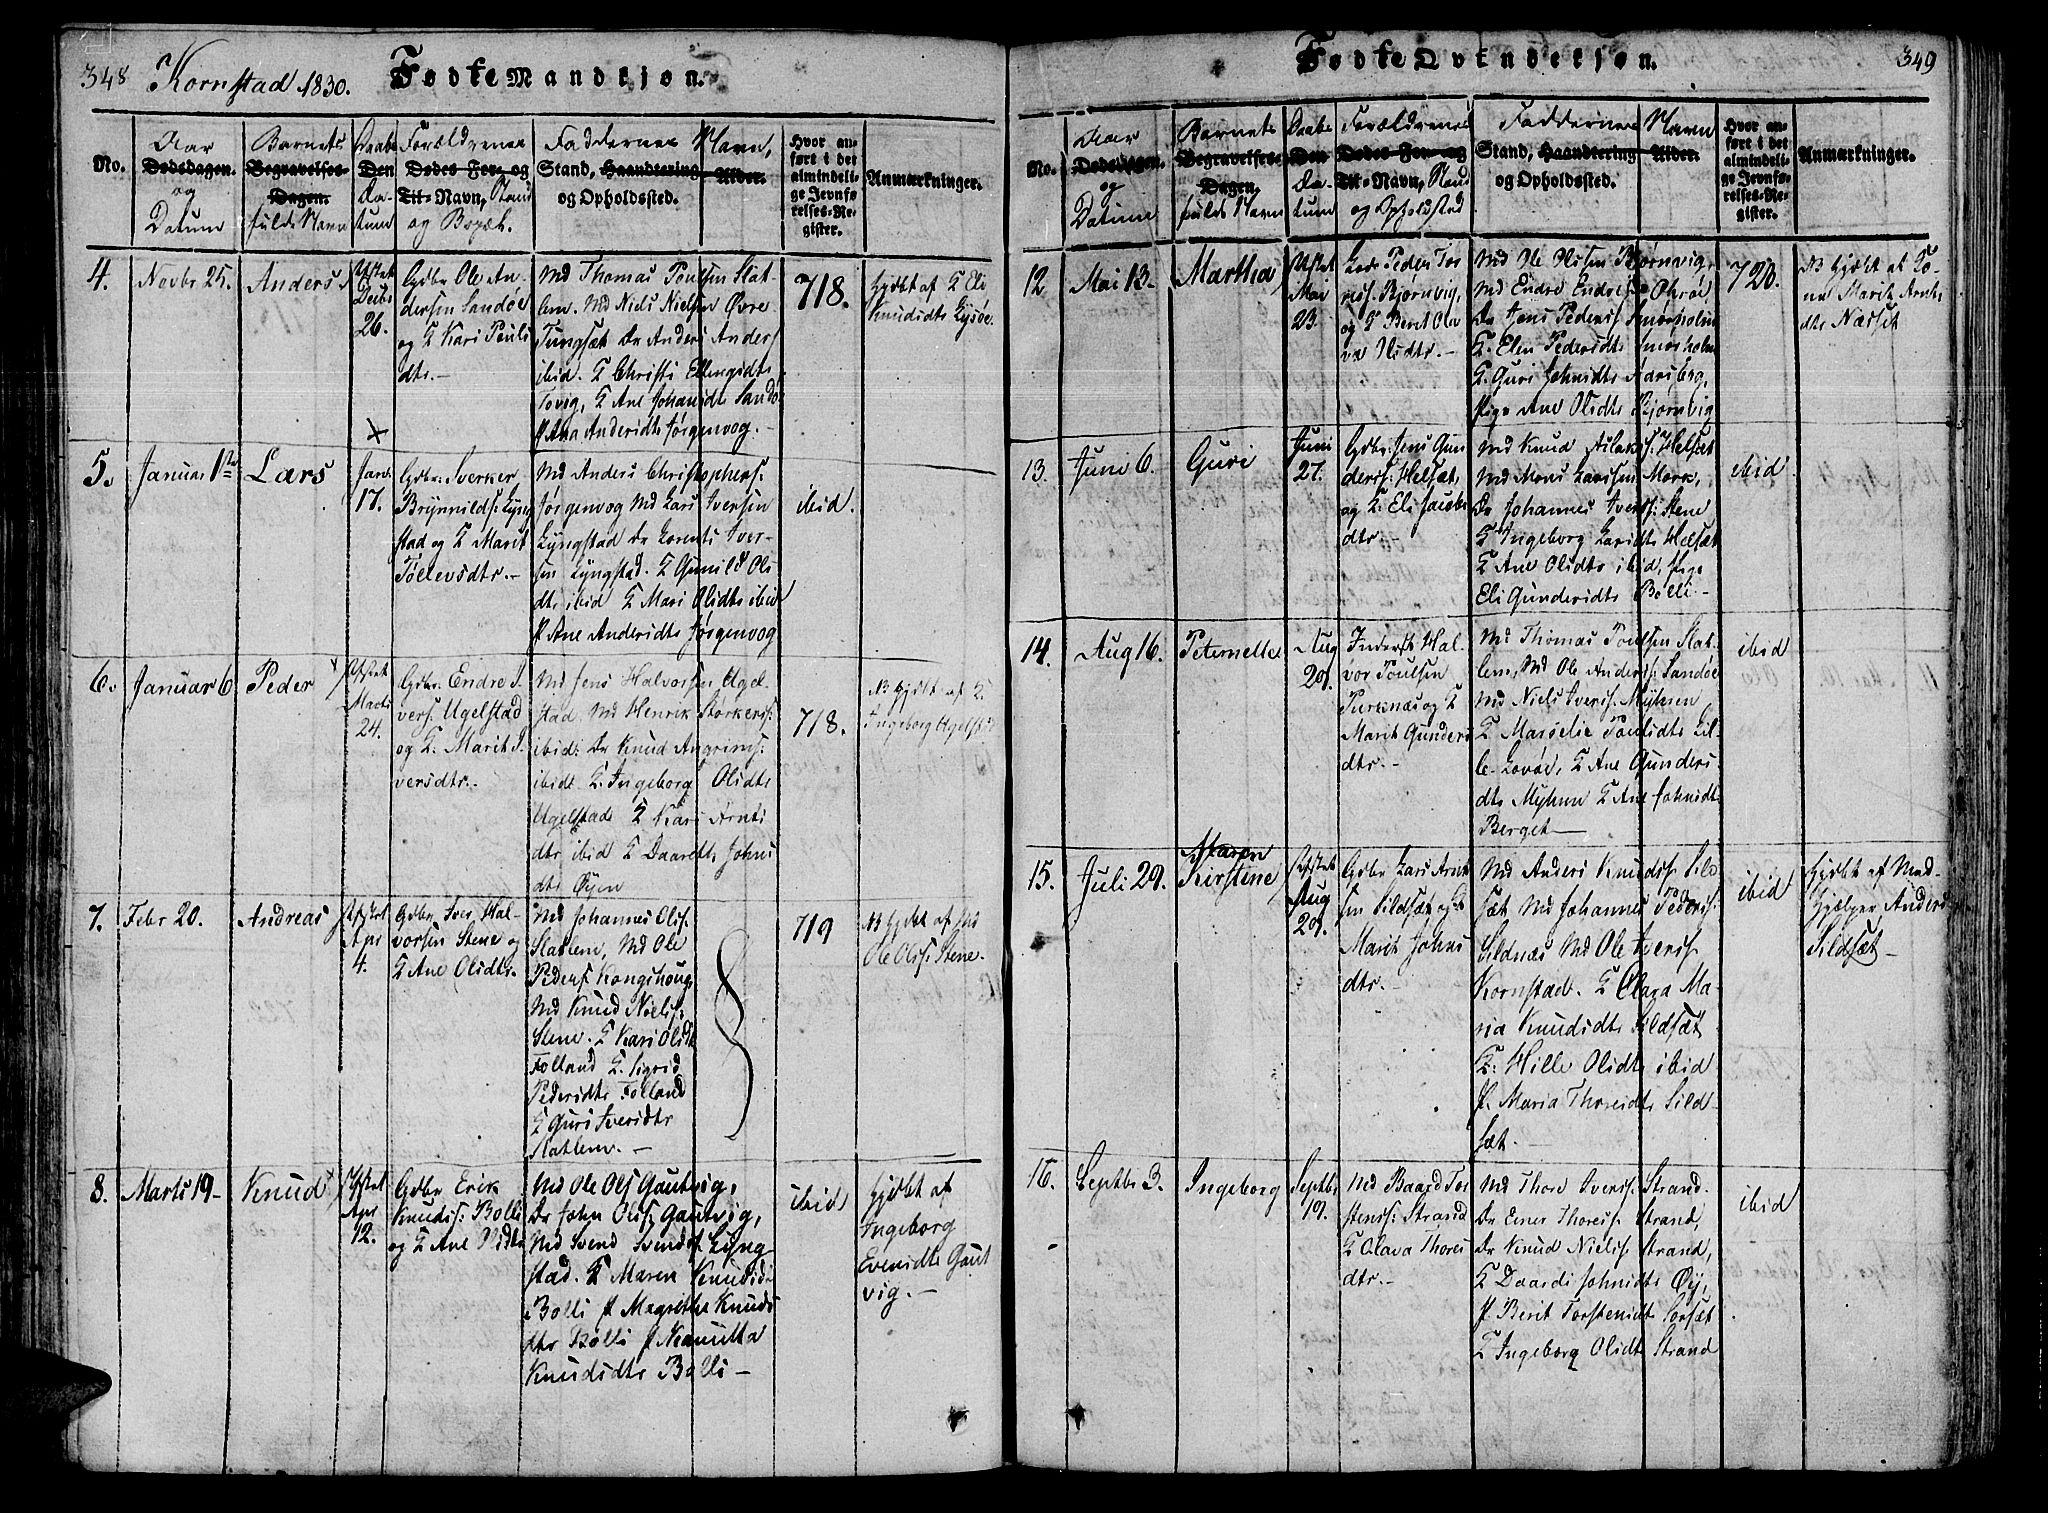 348 Kornstad 1830. Fødte Mandkjøn.
No.
Aar
Dødsdagen.
og
Datum
Barnets
Begravelses-
Dagen.
fulde Navn
Daabs
Den
Da-
tum
Forældrenes
Dødes For- og
Til-Navn, Stand
og Bopæl.
Faddernes Navn,
Stand, Haandtering Alder.
og Opholdssted.
Hvor an-
ført i det
almindeli-
ge Jevnfø-
relses-Re-
gister.
Anmærkninger.
4.
Novbr 25.
Anders
Decbr
26.
Gdbr Ole An-
dersen Sandøe
og K Kari Pouls
dtr.-
Md Thomas Poulsen Slat-
lem. Md Niels Nielsen Øvre
Tungsæt Dr Anders Anders
ibid. K Christi Ellingsdtr
K Ane Johansdtr Sandø
P Ana Andersdtr Jørgenvog.-
718.
hjdbt af K Eli
Knudsdtr Lysøe
5.
Januar 1ste
Lars
Jan.
17.
Gdbr. Sverker
Brynnilds: Lyng
stad og K Marit
Tøllevsdtr.-
Md Anders Christophers:
Jørgenvog Md Lars Iversen
Lyngstad Dr Lorents Iver-
sen Lyngstad. K Gunild Ols
dtr ibid K Mari Olsdtr ibid
P Ane Andersdtr Jørgenvog
ibid.
6.
Januar 6
Peder
Marts
24.
Gdbr. Endre I-
vers: Ugelstad
og K: Marit I-
versdtr.-
Md Jens Halvorsen Ugel-
stad. Md Henrik Størkers:
ibid: Dr Knud Angrims:
ibid. K. Ingeborg Olsdtr
Ugelstad K Kari Arnts
dtr ibid K Daaredt, Johns
dtr Øyen
718.
NB hjdbt af K
Ingeborg Ugelst:
7.
Febr 20.
Andreas
Apr
4.
Gdbr Iver Hal-
vorsen Stene og
K Ane Olsdtr.
Md Johannes Ols:
Slatlem, Md Ole
Peders Kongshoug,
Md Knud Niels:
Stene. K Kari Olsdt
Folland K. Sigrid
Pedersdtr Folland
K Guri Iversdtr
Slatlem.-
719
NB hjdbt af
Ole Ols: Stene.
8.
Marts 19-
Knud
Apr
12.
Gdbr Erik
Knuds: Bolli
og K Ane Olsdtr
Md Ole Ols Gautvig,
Dr John Ols: Gautvig,
Md Svend Svends Lyng
stad. K Maren Knudsd
Bolli P Magrethe Knuds
dtr Bolli P
Knudsdtr Bolli-
ibid
hjdbt af
Ingeborg
Evensdtr Gaut
vig.-
Fødte Qvindekjøn. 349
No.
Aar
Dødsdagen.
og
Datum
Barnets
Begravelses-
Dagen.
fulde Navn
Daabs
Den
Da-
tum
Forældrenes
Dødes For- og
Til-Navn, Stand
og Opholdssted
Faddernes Navn
Stand, Haandtering Alder.
og Opholdssted.
Hvor an-
ført i det
almindeli-
ge Jevnfø-
relses-Re-
gister.
Anmærkninger.
12
Mai 13.
Martha
Mai
23.
Peder Tor
res: Bjørnvig,
og K Beret Ola
va Nilsdtr.-
Md Ole Olsen Bjørnvig,
Md Endre Endres:
Dr Jens Peders: Smørholm
K. Elen Pedersdtr Smørholm
K. Guri Johnsdtr Aarsbog,
Pige Ane Olsdtr Bjørnvig
720.
NB hjdbt af Ko-
ne Marit Arnts
dtr Næsset
13.
Juni 6.
Guri
Juni
27.
Gdbr. Jens Gun
ders: Helsæt,
og K. Eli Jacobs
dtr.-
Md Knud Aslaks: Helsæt
Md Mons Larssen Mork,
Dr Johannes Ivers: Stene
K Ingeborg Larsdtr Helsæt
K Ane Olsdtr ibid, Pige
Eli Gundersdtr Bolli-
ibid
14.
Aug 16.
Peternelle
Aug
29.
Inderst Hal-
vor Poulsen
og K
Marit Gunders
dtr.-
Md Thomas Poulsen Slat-
lem, Md Ole Anders: Sandøe
Md Niels Ivers: Myhren
K Marselie Poulsdtr Lil-
le-Lovøe, K Ane Gunders
dtr Myhren K Ane Johnsdtr
Berget-
ibid
15.
Juli 29.
Maren
Kirstine
Aug
29.
Gdbr Lars Arnt
sen Sildsæt og K
Marit Johns
dtr.-
Md Anders Knuds: Sild
sæt Md Johannes Peders:
Sildnæs Md Ole Ivers:
Kornstad. K Olaga Ma-
ria Knudsdtr Sildsæt
K: Hille Olsdtr ibid
P. Maria Thoresdtr Sild-
sæt.-
ibid
hjdbt af Med-
hjælper Anders
Sildsæt-
16.
Septbr 3.
Ingeborg
Septbr.
19.
Md Baard Tor
stens: Strand
K Olava Thores
dtr.-
Md Thore Ivers: Strand-
Dr Einer Thores: Strand,
Dr Knud Niels: Strand,
K Daardi Johnsdtr Øy,
P Berit Torstensdt Sorsæt
K Ingeborg Olsdt Strand
ibid